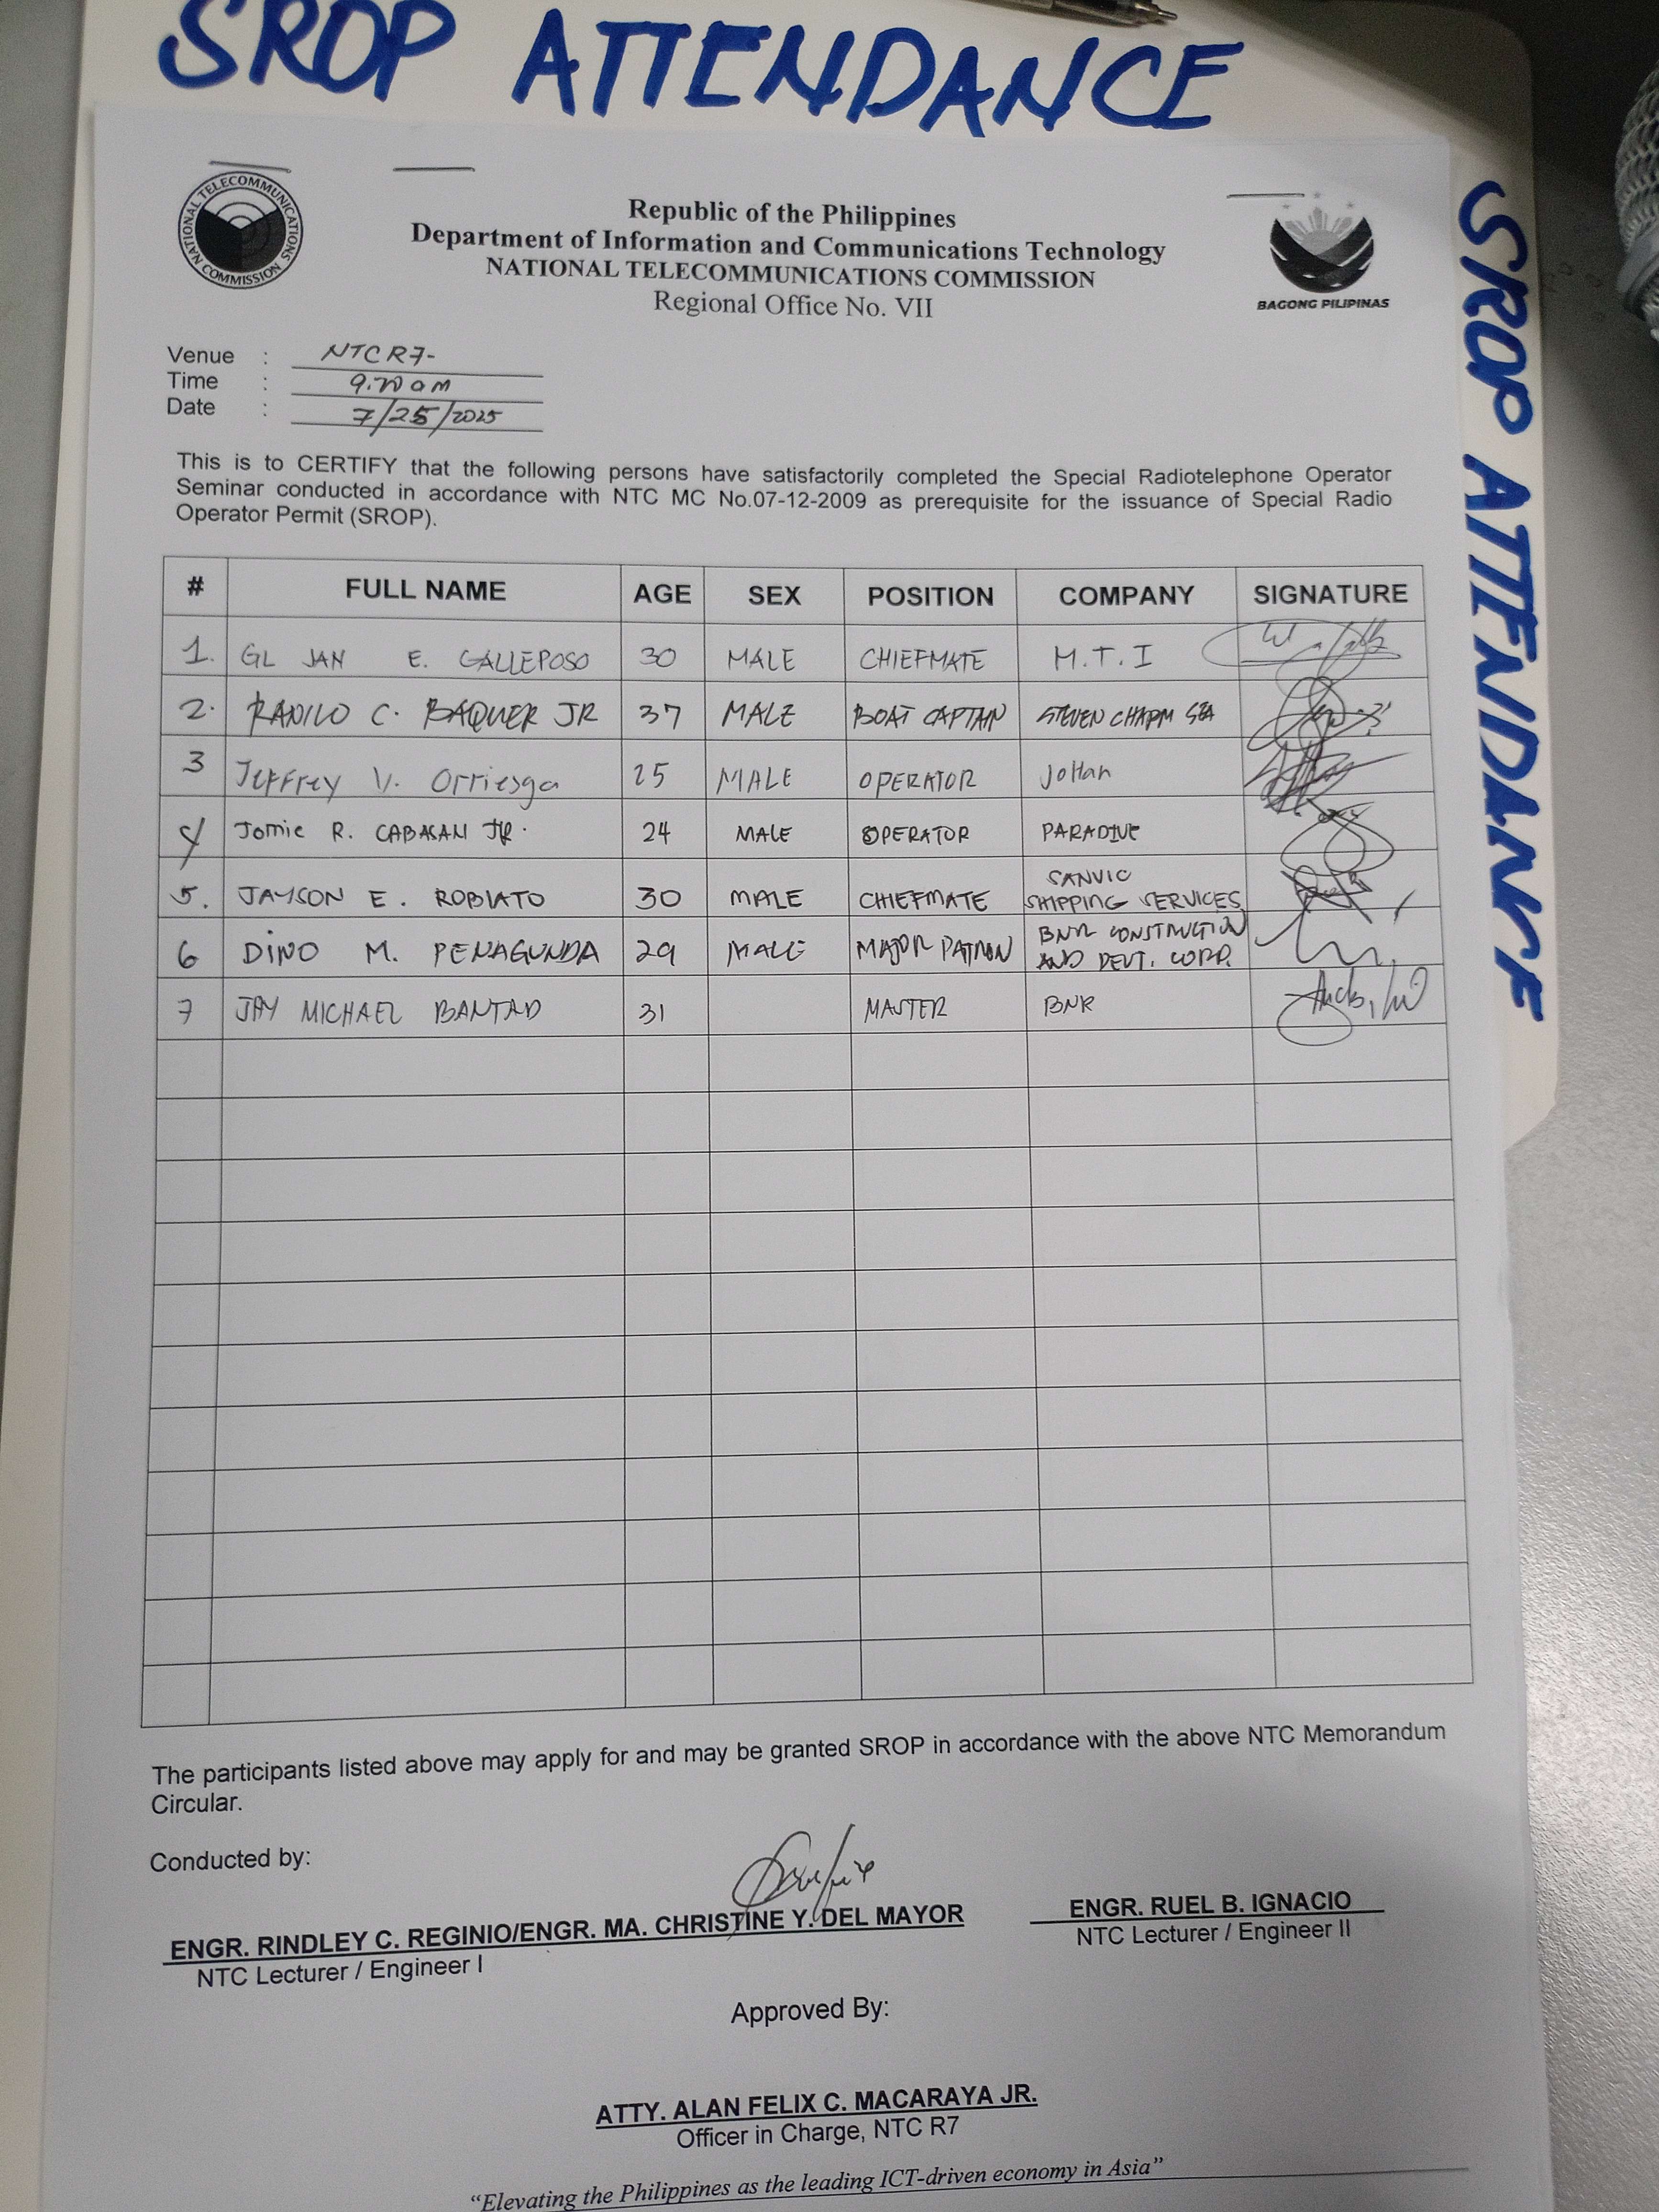 SROP ATTENDANCE
SROP ATTENDANCE
NATIONAL TELECOMMUNICATIONS COMMISSION
Republic of the Philippines
Department of Information and Communications Technology
NATIONAL TELECOMMUNICATIONS COMMISSION
Regional Office No. VII
BAGONG PILIPINAS
Venue : NTC R7-
Time :
Date : 7/25/2025
This is to CERTIFY that the following persons have satisfactorily completed the Special Radiotelephone Operator
Seminar conducted in accordance with NTC MC No.07-12-2009 as prerequisite for the issuance of Special Radio
Operator Permit (SROP).
# FULL NAME AGE SEX POSITION COMPANY SIGNATURE
1. GL JAN E. GALLEPOSO 30 MALE CHIEFMATE M.T.I
2. RANILO C. BAQUER JR 37 MALE BOAT CAPTAIN STEVEN CHARM SEA
3 Jeffrey V. Orriesga 25 MALE OPERATOR JoHan
4 Jomie R. CABASAN JR. 24 MALE OPERATOR PARADIVE
5. JAYSON E. ROBLATO 30 MALE CHIEFMATE SANVIC
SHIPPING SERVICES
6 DINO M. PENAGUNDA 29 MALE MAJOR PATRON BNR CONSTRUCTION
AND DEVT. CORP.
7 JAY MICHAEL BANTAD 31 MASTER BNR
The participants listed above may apply for and may be granted SROP in accordance with the above NTC Memorandum
Circular.
Conducted by:
ENGR. RINDLEY C. REGINIO/ENGR. MA. CHRISTINE Y. DEL MAYOR
NTC Lecturer / Engineer I
ENGR. RUEL B. IGNACIO
NTC Lecturer / Engineer II
Approved By:
ATTY. ALAN FELIX C. MACARAYA JR.
Officer in Charge, NTC R7
“Elevating the Philippines as the leading ICT-driven economy in Asia”